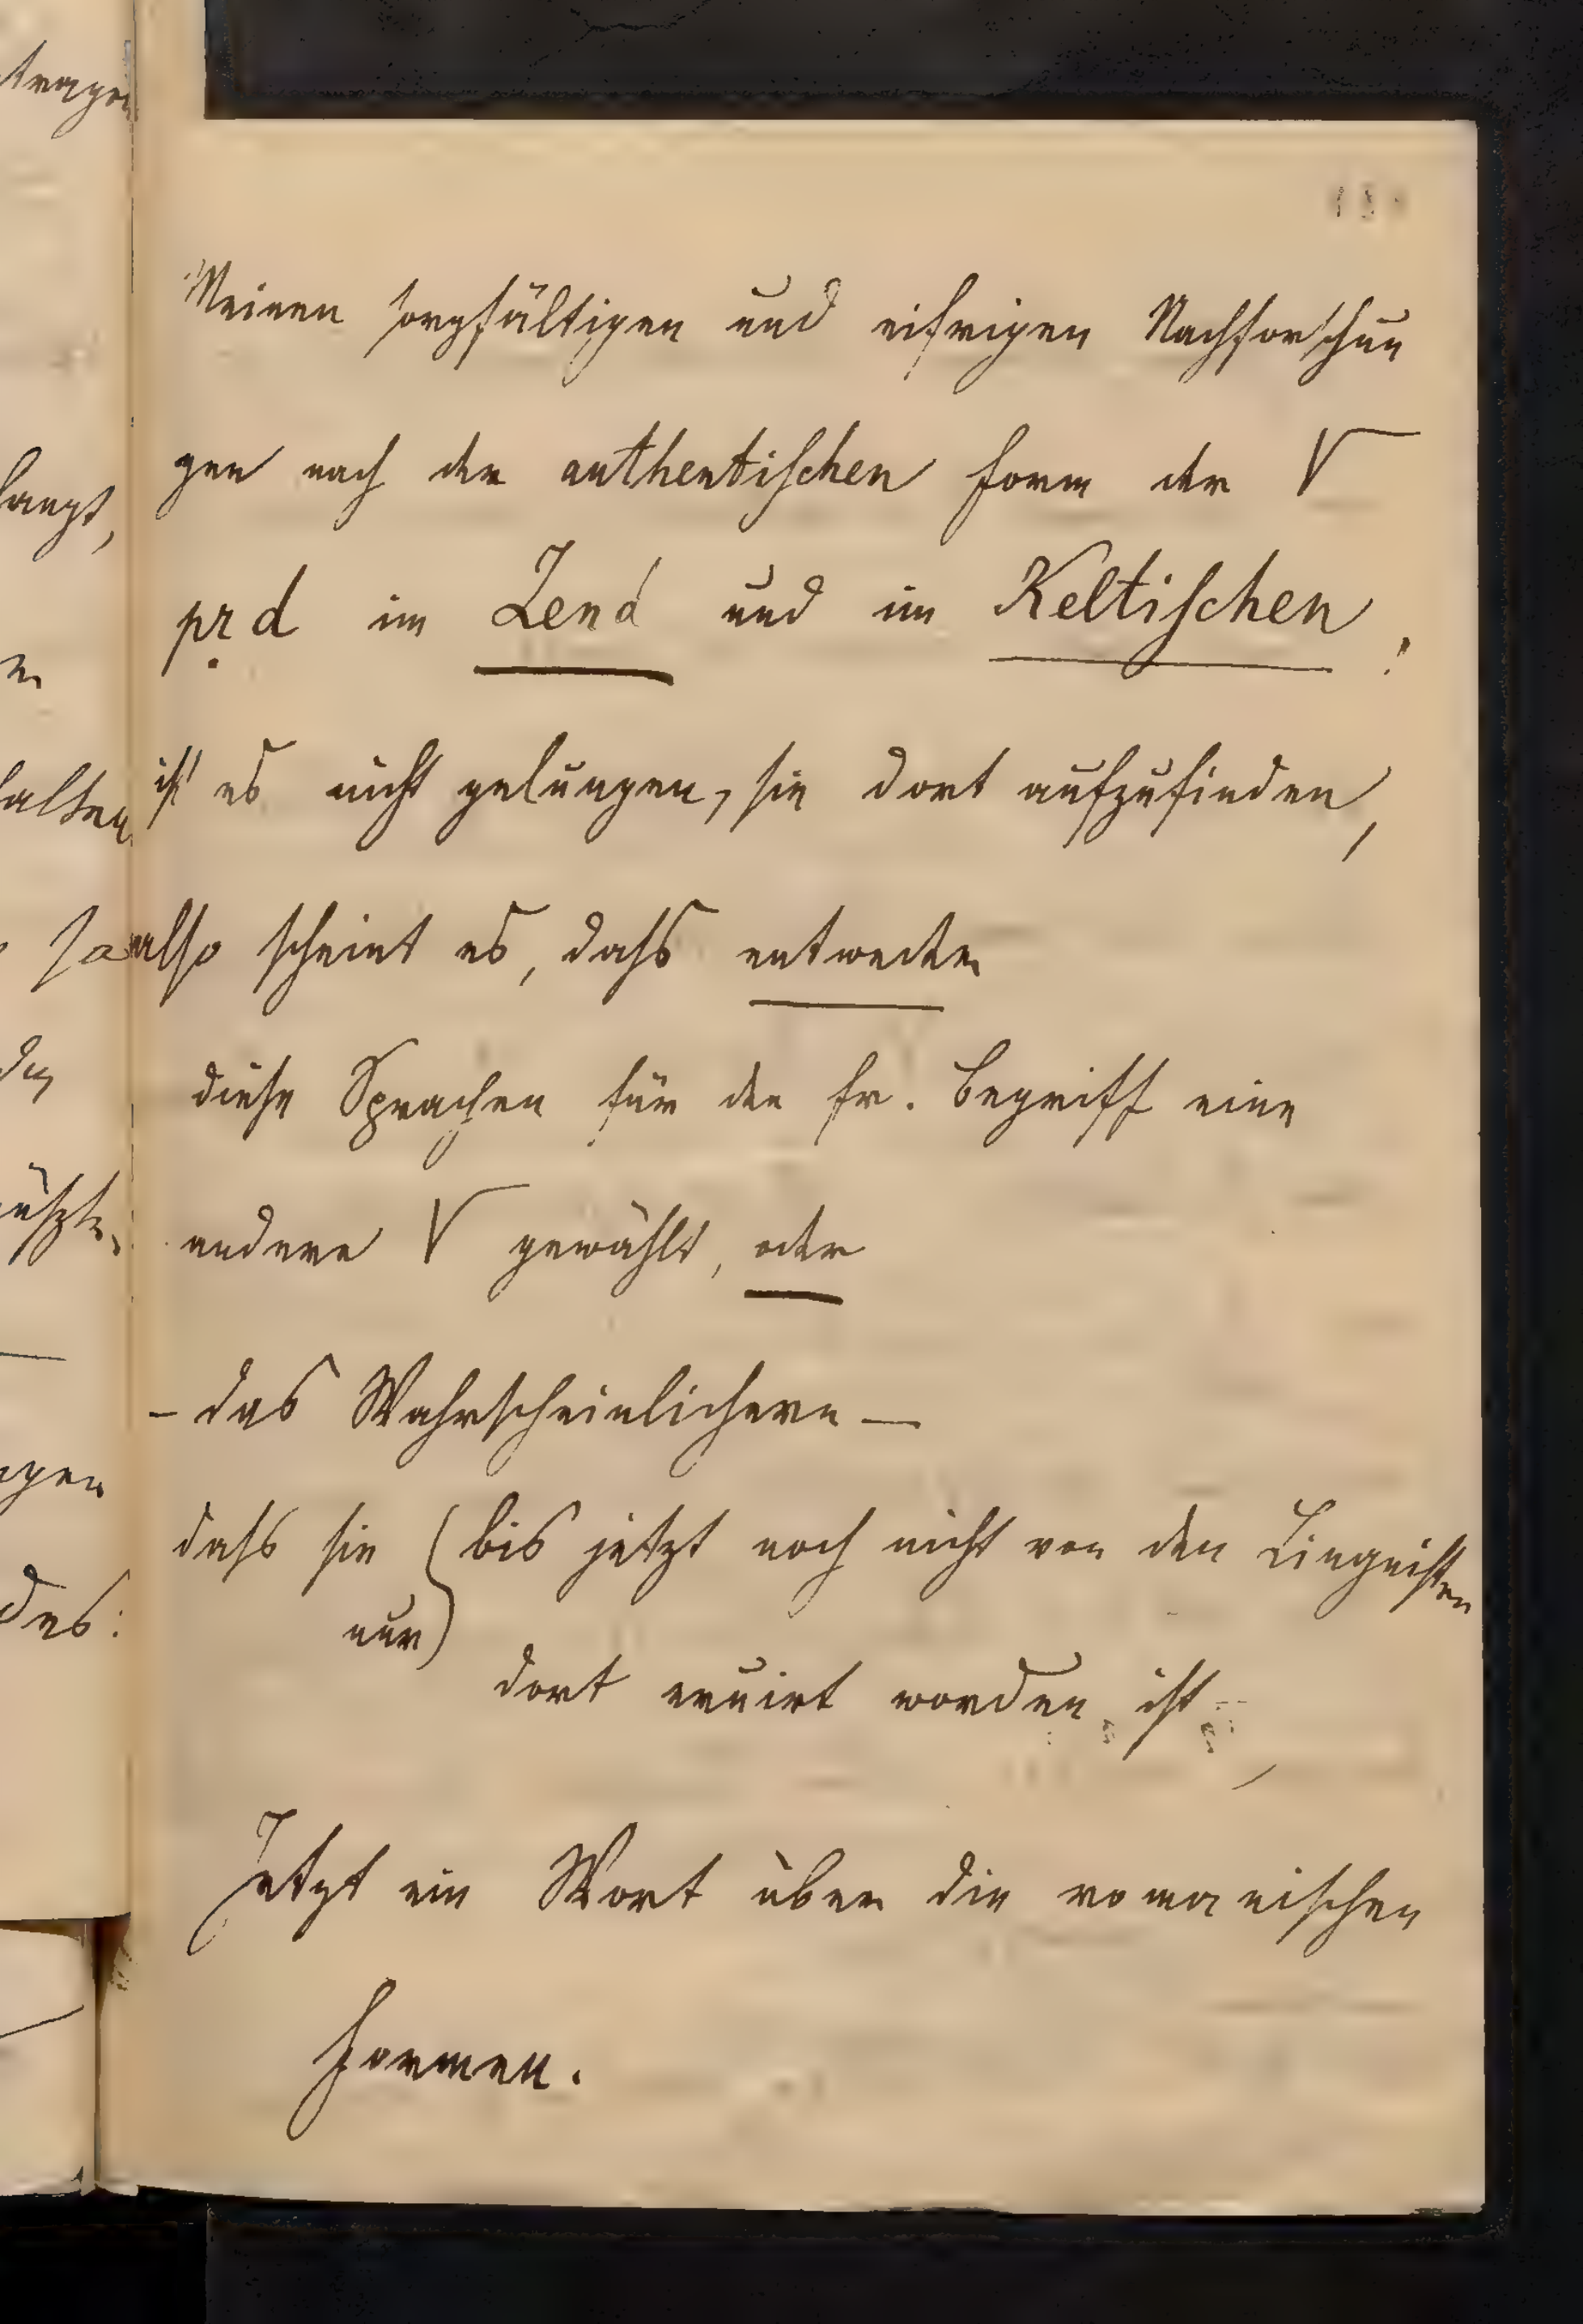 Meinen sorgfältigen und eifrigen Nachforschun
gen nach der authentischen Form der √
pṛd im Zend und im Keltischen,
ist es nicht gelungen, sie dort aufzufinden,
also scheint es, dass entweder
diese Sprachen für den fr. Begriff eine
andere √ gewählt, oder
– das Wahrscheinlichere –
dass sie (bis jetzt noch nicht von den Linguisten
nur)
dort eruirt worden ist,
Jetzt ein Wort über die romanischen
Formen.